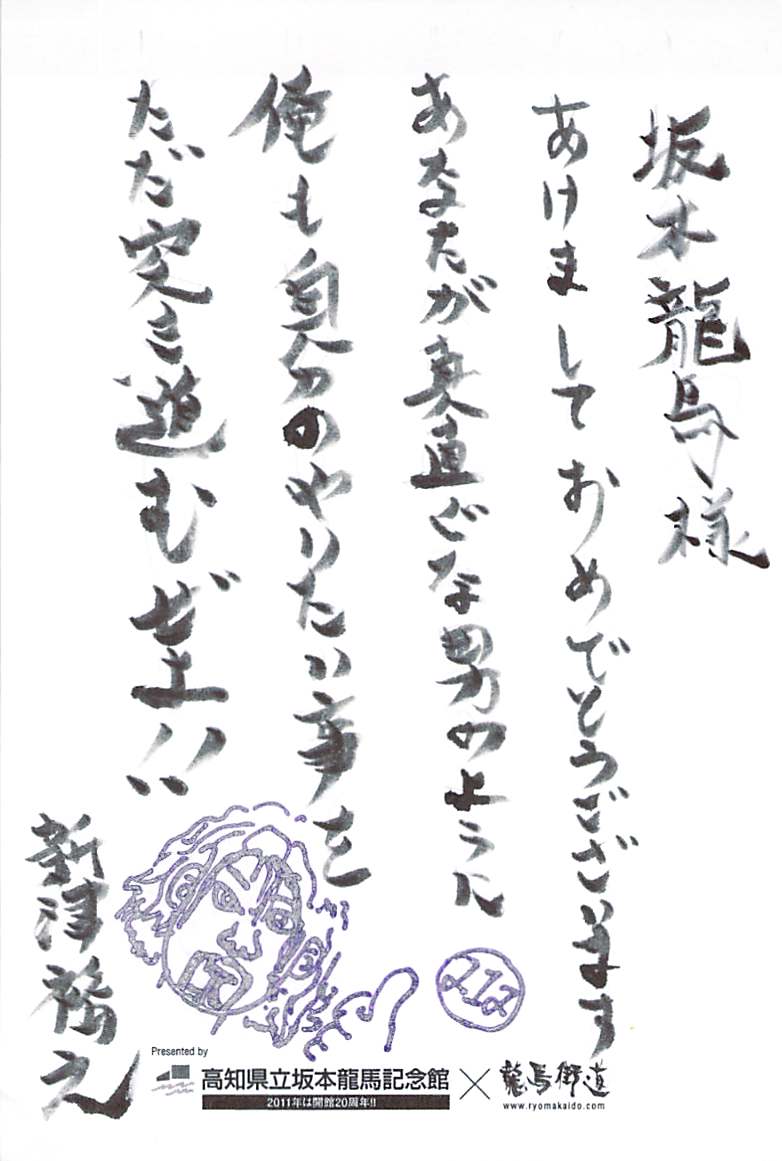 坂本龍馬様
あけましておめでとうございます
あなたが真直ぐな男のように
俺も自分のやりたい事を
ただ突き進むぜよ!!
新津務之
Presented by
高知県立坂本龍馬記念館
2011年は開館20周年!!
×
龍馬街道
www.ryomakaido.com